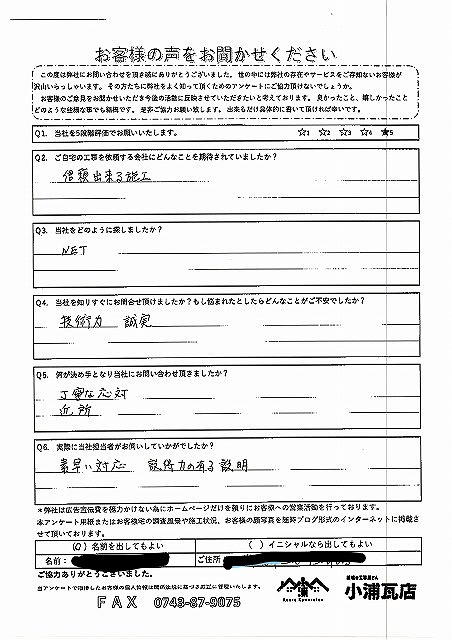 お客様の声をお聞かせください
この度は弊社にお問い合わせを頂き誠にありがとうございました。世の中には弊社の存在やサービスをご存知ないお客様が
沢山いらっしゃいます。その方たちに弊社をよく知って頂くためのアンケートにご協力頂けないでしょうか。
お客様のご意見をお聞かせいただき今後の活動に反映させていただきたいと考えております。良かったこと、嬉しかったこと
どのような些細な事でも結構です。是非ご協力お願い致します。出来るだけ具体的に書いて頂ければ幸いです。
Q1. 当社を5段階評価でお願いいたします。 ☆1 ☆2 ☆3 ☆4 ★5
Q2. ご自宅の工事を依頼する会社にどんなことを期待されていましたか？
信頼出来る施工
Q3. 当社をどのように探しましたか？
NET
Q4. 当社を知りすぐにお問合せ頂けましたか？もし悩まれたとしたらどんなことがご不安でしたか？
技術力 誠実
Q5. 何が決め手となり当社にお問い合わせ頂きましたか？
丁寧な応対
近所
Q6. 実際に当社担当者がお伺いしていかがでしたか？
素早い対応 説得力の有る説明
＊弊社は広告宣伝費を極力かけない為にホームページだけを頼りにお客様への営業活動を行っております。
本アンケート用紙またはお客様宅の調査風景や施工状況、お客様の顔写真を随時ブログ形式のインターネットに掲載さ
せて頂いております。
(O) 名前を出してもよい ( ) イニシャルなら出してもよい
名前： ご住所
ご協力ありがとうございました。
当アンケートで取得したお客様の個人情報は関係法規に基づき適正に管理いたします。
FAX 0743-87-9075
Koura Kawaraten
小浦瓦店